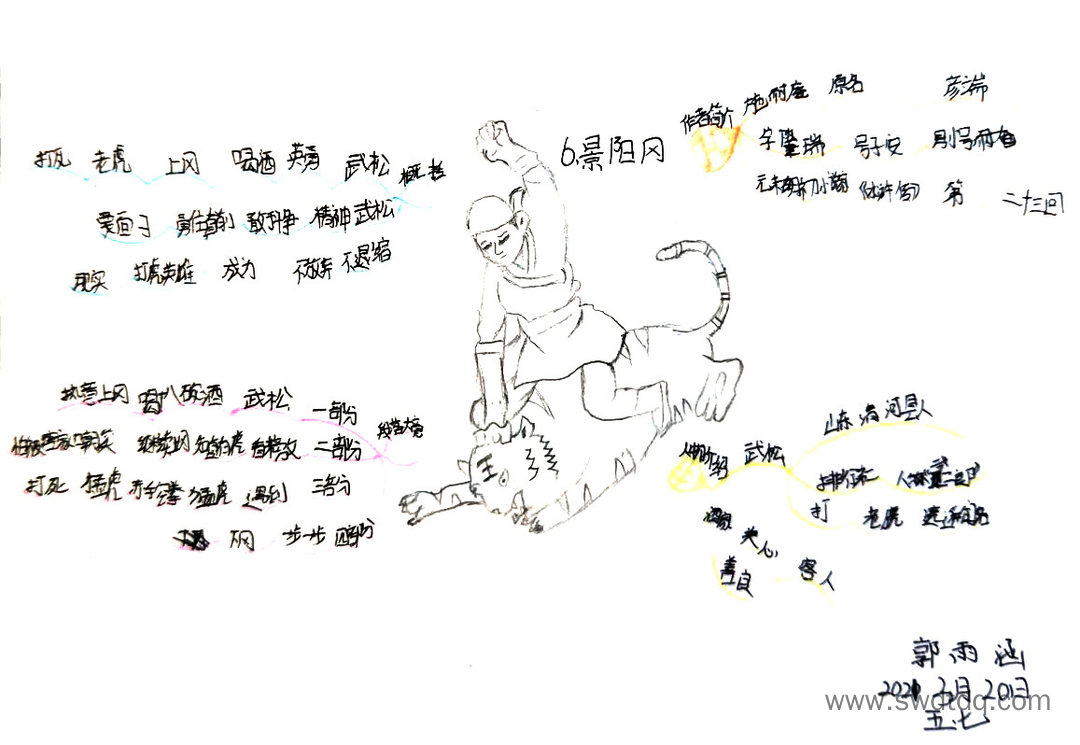 6.景阳冈
作者简介 施耐庵 原名 彦端
字肇瑞 号子安 别号耐庵
元末明初小说 《水浒传》 第 二十三回
打死 老虎 上冈 喝酒 英勇 武松 概括
爱面子 勇往直前 敢斗争 精神 武松
现实 打虎英雄 成为 不放弃 不退缩
执意上冈 喝八碗酒 武松 一部分
继续 二部分
打死 猛虎 赤手空拳 猛虎 遇到 三部分
下冈 步步 四部分
人物介绍 武松 山东清河县人
排行老二 人称武二郎
打 老虎
店家 关心 客人
善良
郭雨涵
2021 2月20日
五.七
www.swdtdq.com